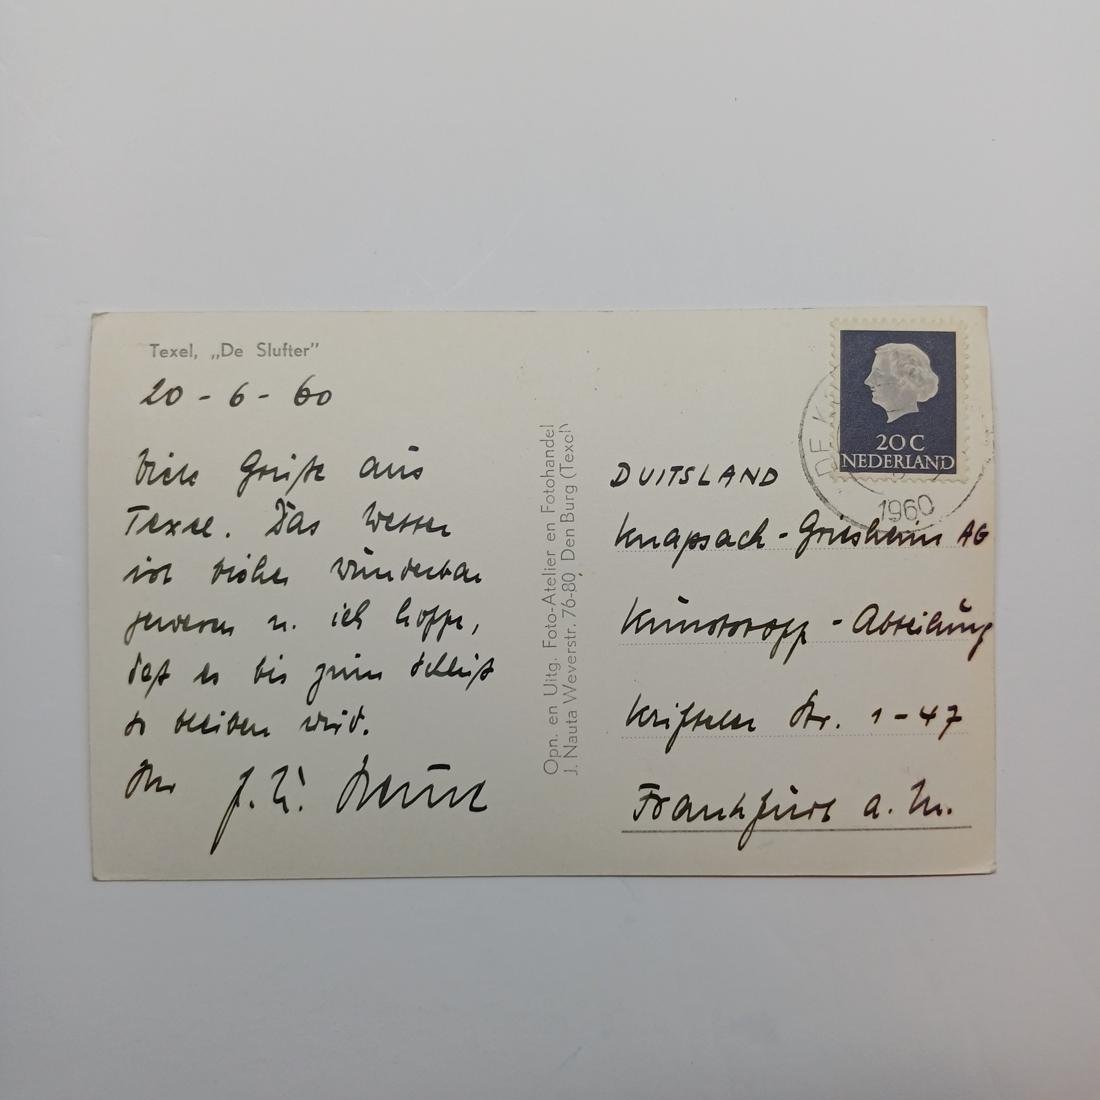 Texel, „De Slufter”
20 - 6 - 60
Viele Grüße aus
Texel. Das Wetter
ist bisher wunderbar
gewesen u. ich hoffe,
daß es bis zum Schluß
so bleiben wird.
Ihr
Opn. en Uitg. Foto-Atelier en Fotohandel
J. Nauta Weverstr. 76-80, Den Burg (Texel)
20 C
NEDERLAND
DE K
1960
DUITSLAND
Knapsack - Griesheim AG
Kunststoff - Abteilung
Krifteler Str. 1-47
Frankfurt a. M.